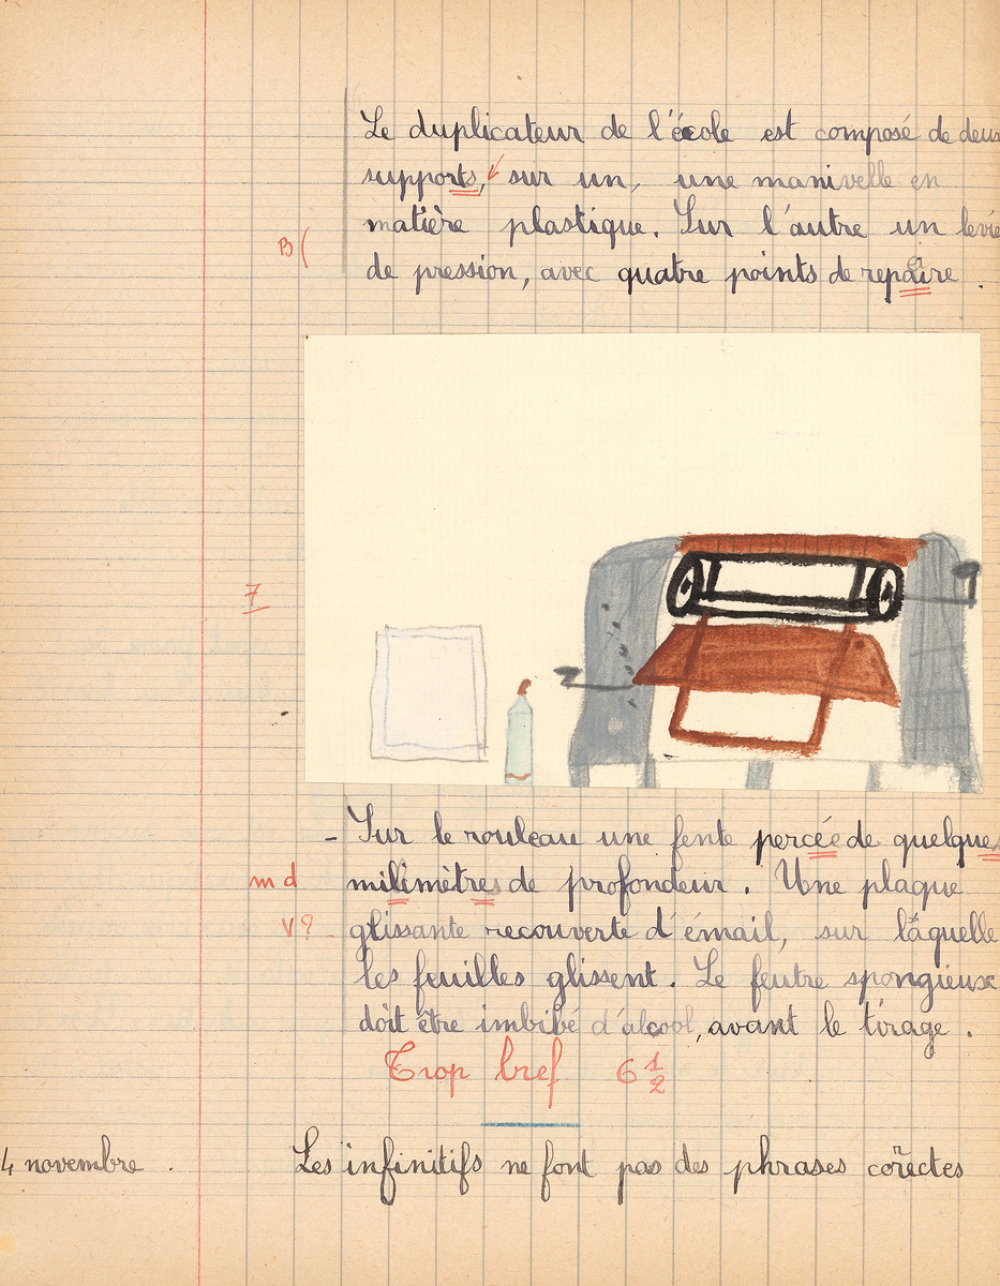 Le duplicateur de l'école est composé de deux
supports, sur un, une manivelle en
matière plastique. Sur l'autre un levie
B(
de pression, avec quatre points de repaire.
7
- Sur le rouleau une fente percée de quelques
m d
milimètres de profondeur. Une plaque
V?
glissante recouverte d'émail, sur laquelle
les feuilles glissent. Le feutre spongieux
doit être imbibé d'alcool, avant le tirage.
Trop bref 6 1/2
4 novembre. Les infinitifs ne font pas des phrases corectes